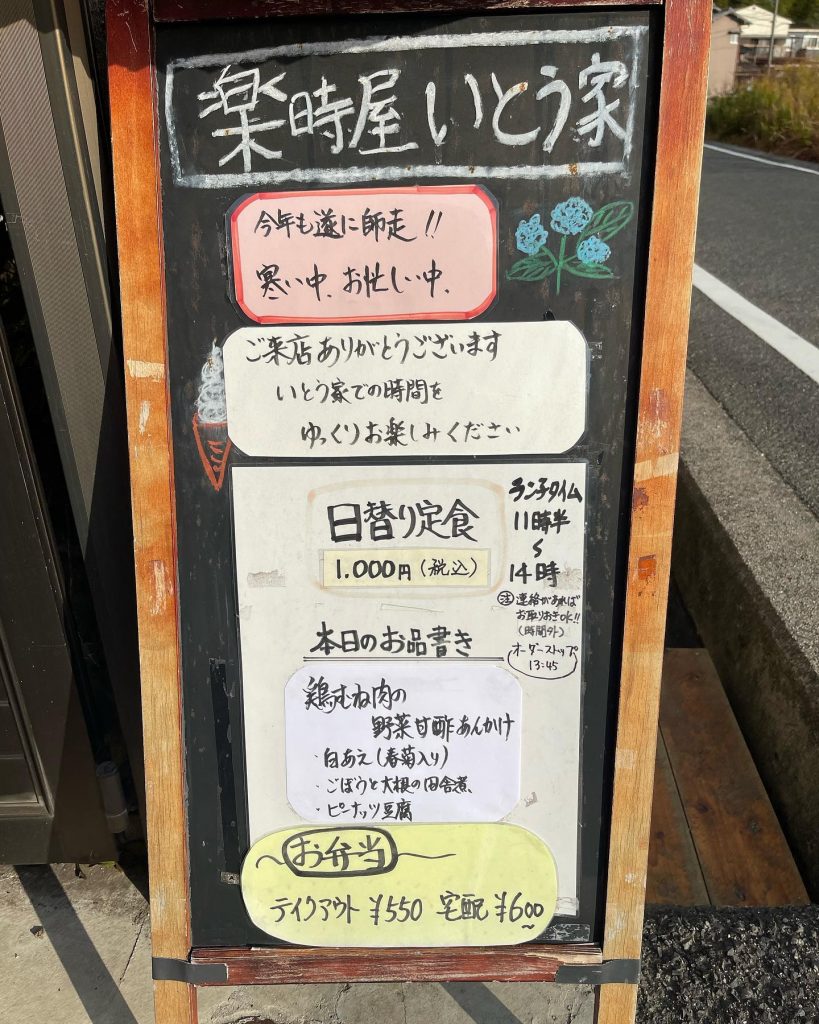 楽時屋いとう家
今年も遂に師走!!
寒い中、お忙しい中、
ご来店ありがとうございます
いとう家での時間を
ゆっくりお楽しみください
日替り定食
1.000円(税込)
ランチタイム
11時半
〜
14時
㊟連絡があれば
お取りおきok!!
(時間外)
オーダーストップ
13:45
本日のお品書き
鶏むね肉の
野菜甘酢あんかけ
・白あえ(春菊入り)
・ごぼうと大根の田舎煮、
・ピーナッツ豆腐
〜お弁当〜
テイクアウト ¥550 宅配 ¥600〜